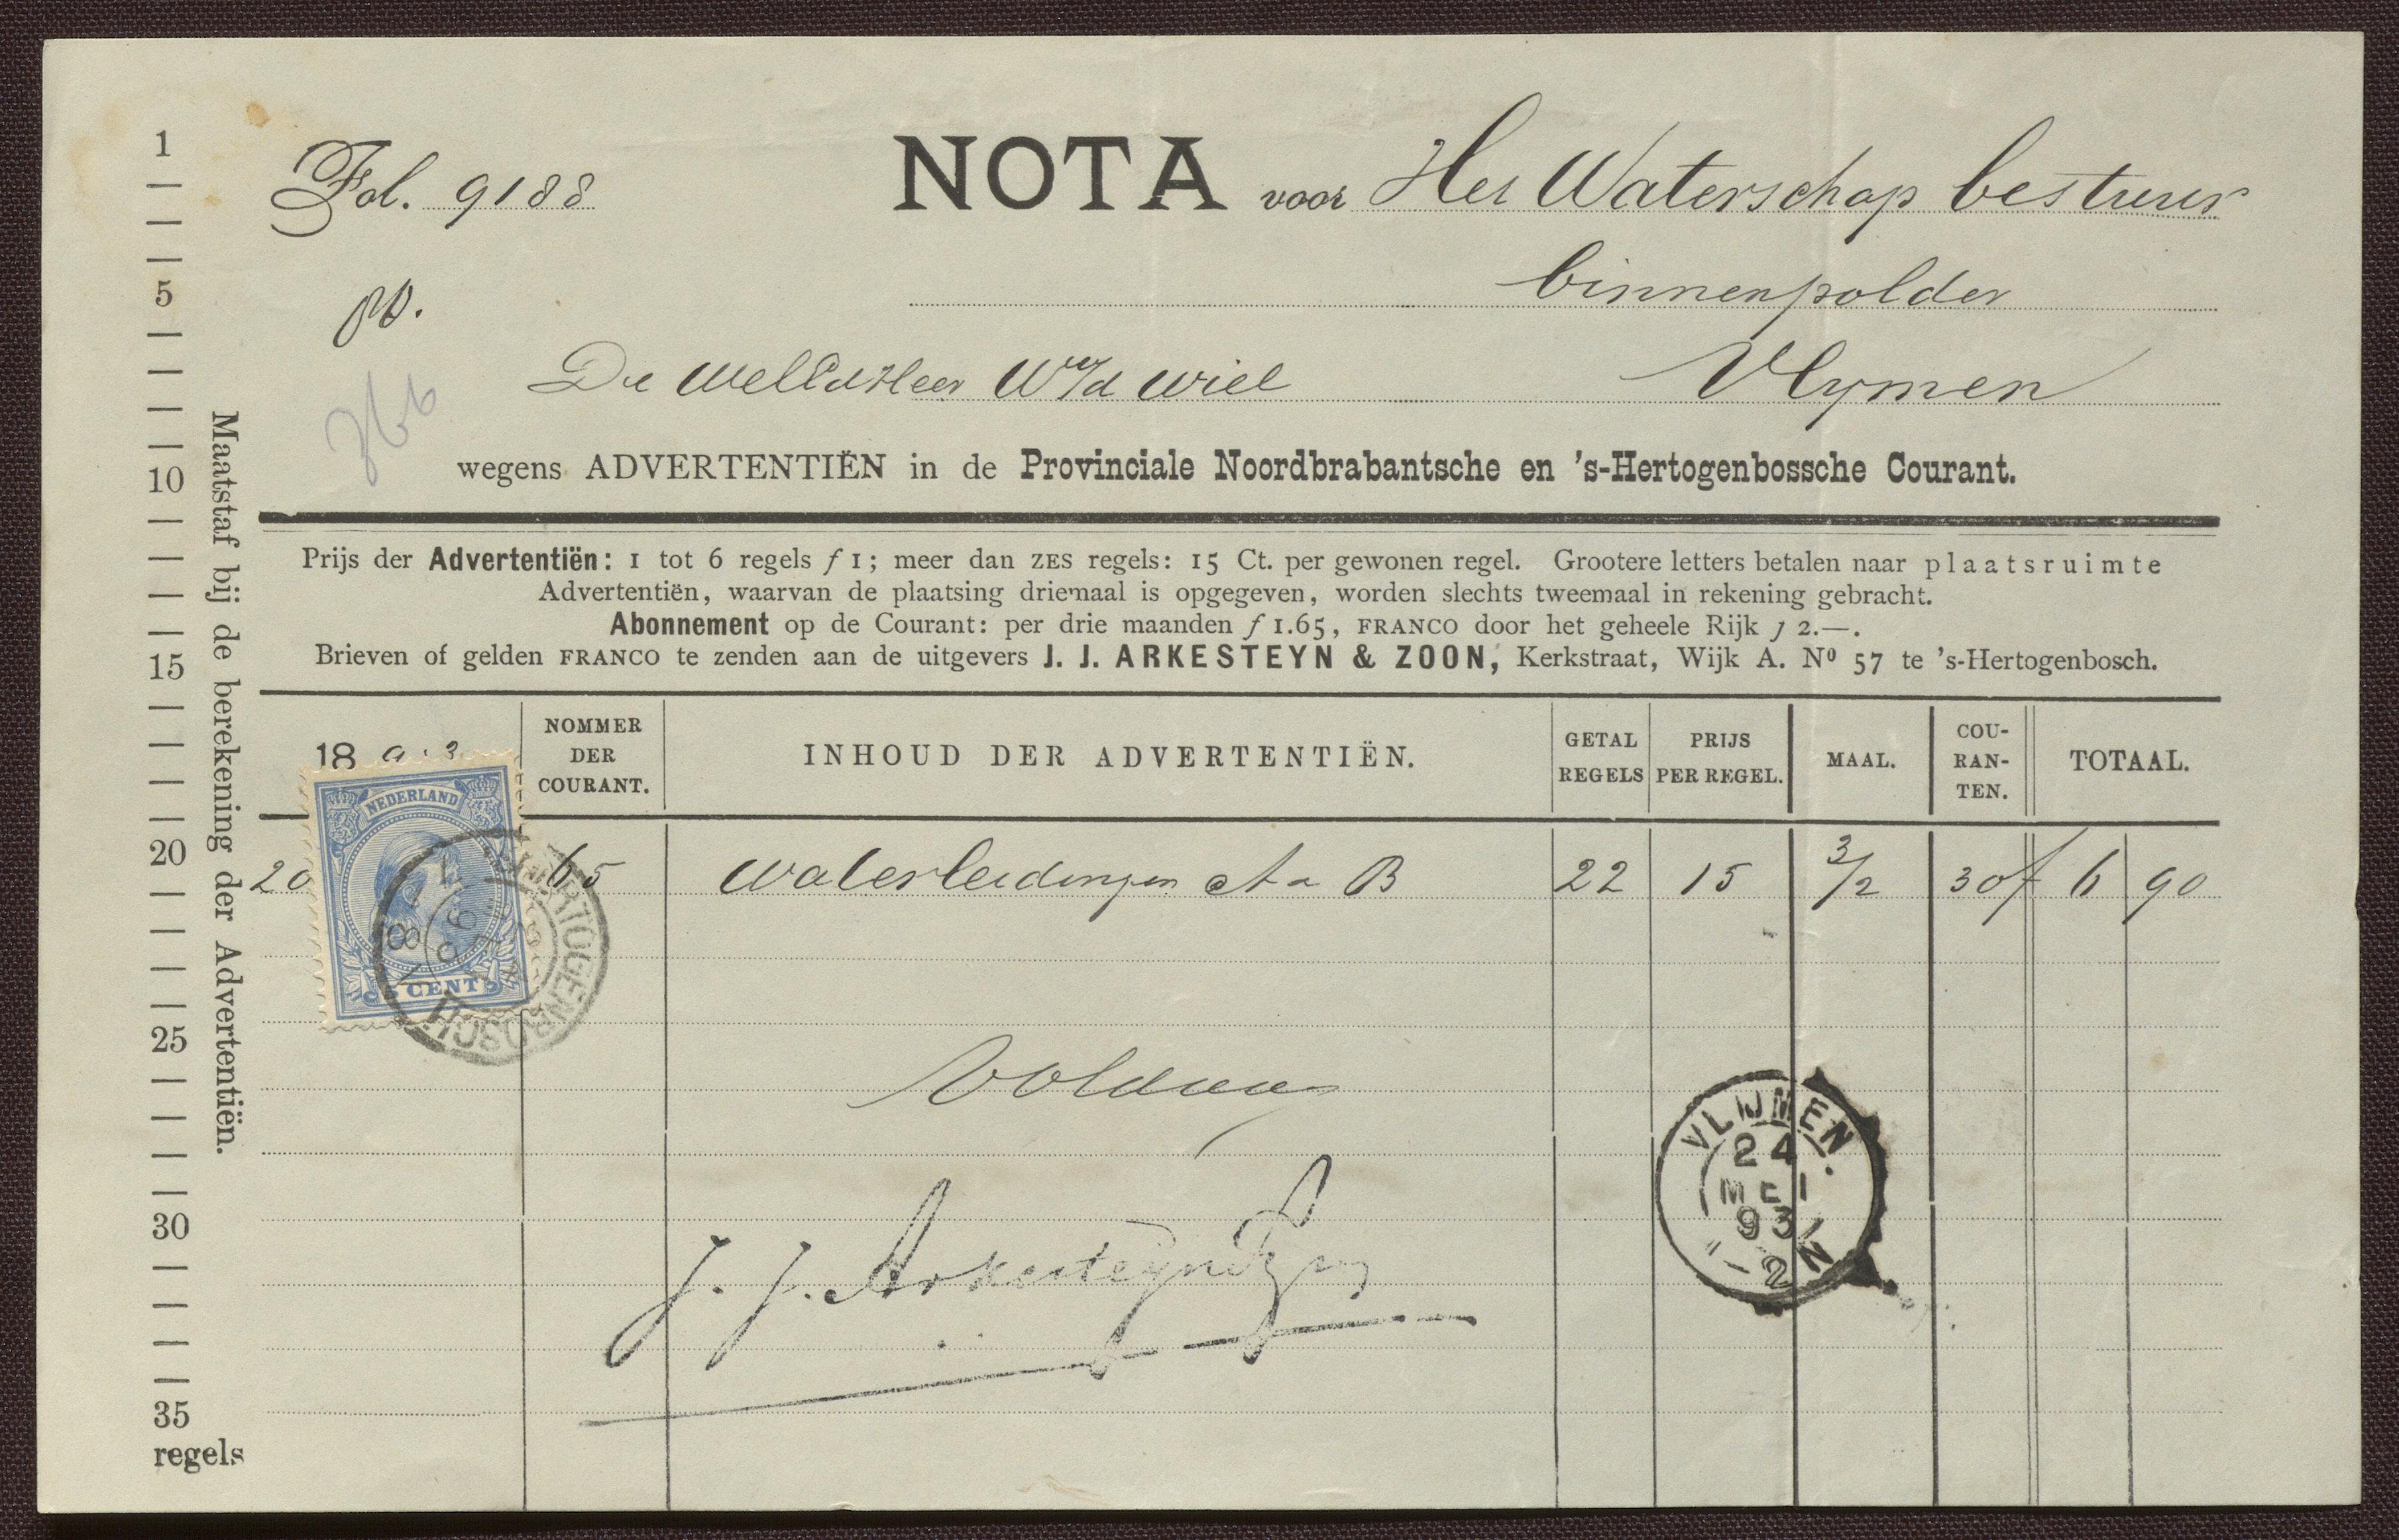 Fol. 9188
NOTA voor Het Waterschap bestuur
binnenpolder
De WelEdHeer W v/d Wiel
Vlymen
wegens ADVERTENTIËN in de Provinciale Noordbrabantsche en 's-Hertogenbossche Courant.
Prijs der Advertentiën: 1 tot 6 regels f 1; meer dan ZES regels: 15 Ct. per gewonen regel. Grootere letters betalen naar plaatsruimte
Advertentiën, waarvan de plaatsing driemaal is opgegeven, worden slechts tweemaal in rekening gebracht.
Abonnement op de Courant: per drie maanden f 1.65, FRANCO door het geheele Rijk f 2.—.
Brieven of gelden FRANCO te zenden aan de uitgevers J. J. ARKESTEYN & ZOON, Kerkstraat, Wijk A. Nº 57 te 's-Hertogenbosch.
1893
NOMMER DER COURANT.
INHOUD DER ADVERTENTIËN.
GETAL REGELS
PRIJS PER REGEL.
MAAL.
COU-
RAN-
TEN.
TOTAAL.
20 65 Waterleidingen A a B 22 15 3/2 30 f 6 90
NEDERLAND
5 CENT
'S HERTOGENBOSCH
Voldaan
J. J. Arkesteyn & Zn
VLIJMEN
24
MEI
93
- 2 N
Maatstaf bij de berekening der Advertentiën.
1
5
10
15
20
25
30
35
regels